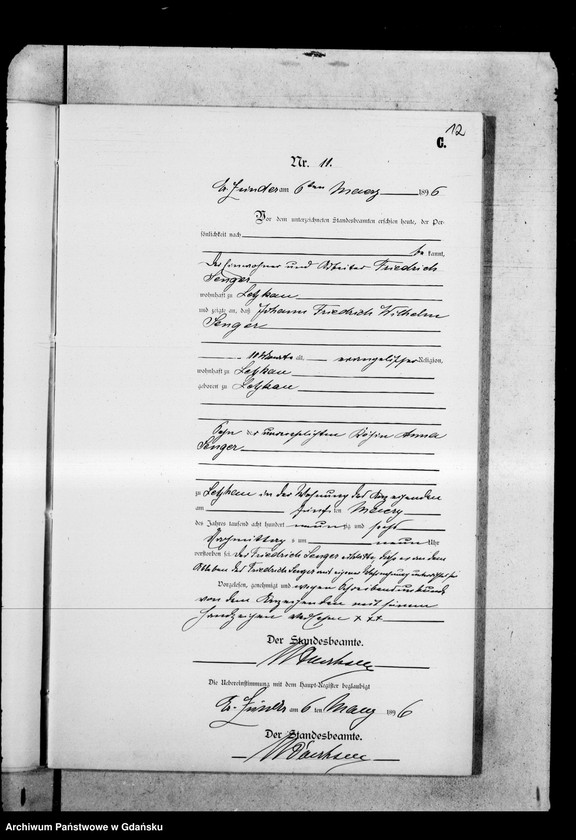 12
C.
Nr. 11.
Gr. Zünder am 6ten Maerz 1896
Vor dem unterzeichneten Standesbeamten erschien heute, der Per-
sönlichkeit nach
be kannt,
der Einwohner und Arbeiter Friedrich
Senger
wohnhaft zu Letzkau
und zeigte an, daß Johann Friedrich Wilhelm
Senger
10 Monate alt, evangelischer Religion,
wohnhaft zu Letzkau
geboren zu Letzkau
Sohn der unverehelichten Köchin Anna
Senger
zu Letzkau in der Wohnung des Anzeigenden
am fünften Maerz
des Jahres tausend acht hundert neunzig und sechs
Nachmittag s um neun Uhr
verstorben sei. Der Friedrich Senger erklärte, daß er von dem
Ableben des Friedrich Senger aus eigener Wissenschaft unterrichtet sei
Vorgelesen, genehmigt und wegen Schreibensunkunde
von dem Anzeigenden mit seinem
Handzeichen versehen + + +
Der Standesbeamte.
Die Uebereinstimmung mit dem Haupt-Register beglaubigt
Gr. Zünder am 6 ten Maerz 1896
Der Standesbeamte.
Archiwum Państwowe w Gdańsku